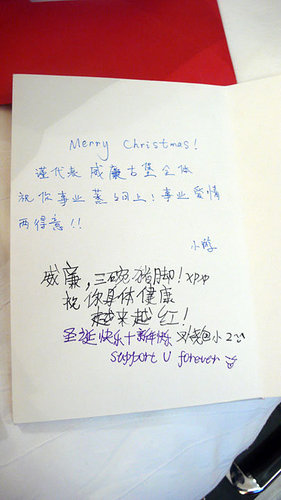 Merry Christmas!
谨代表 威廉古堡全体
祝你事业 蒸蒸日上！事业爱情
两得意!!
小鸭
威廉，三碗猪脚! xpp
祝你身体健康
越来越红!
圣诞快乐+新年快乐 小2
support U forever